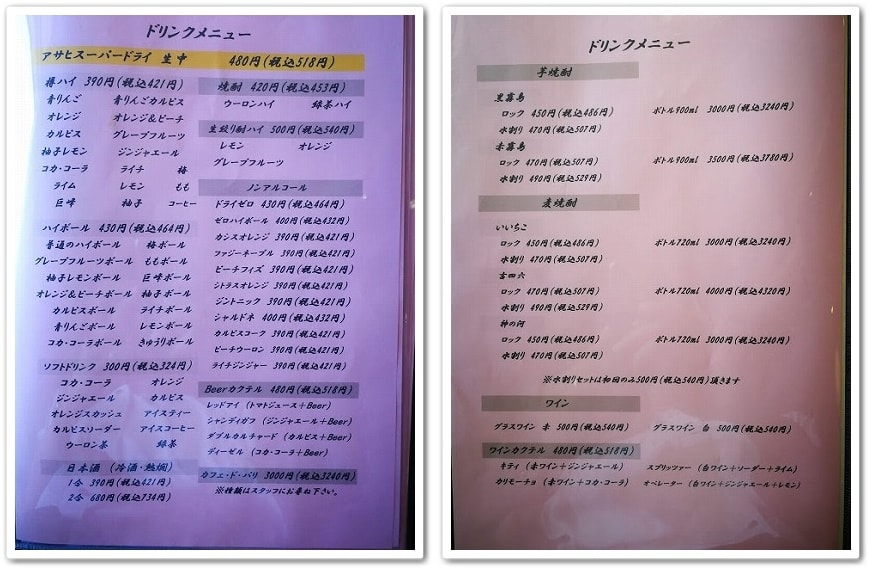 ドリンクメニュー
アサヒスーパードライ 生中 480円(税込518円)
樽ハイ 390円(税込421円)
青りんご 青りんごカルピス
オレンジ オレンジ&ピーチ
カルピス グレープフルーツ
柚子レモン ジンジャエール
コカ・コーラ ライチ 梅
ライム レモン もも
巨峰 柚子 コーヒー
ハイボール 430円(税込464円)
普通のハイボール 梅ボール
グレープフルーツボール ももボール
柚子レモンボール 巨峰ボール
オレンジ&ピーチボール 柚子ボール
カルピスボール ライチボール
青りんごボール レモンボール
コカ・コーラボール きゅうりボール
ソフトドリンク 300円(税込324円)
コカ・コーラ オレンジ
ジンジャエール カルピス
オレンジスカッシュ アイスティー
カルピスソーダー アイスコーヒー
ウーロン茶 緑茶
日本酒 (冷酒・熱燗)
1合 390円(税込421円)
2合 680円(税込734円)
焼酎 420円(税込453円)
ウーロンハイ 緑茶ハイ
生絞り酎ハイ 500円(税込540円)
レモン オレンジ
グレープフルーツ
ノンアルコール
ドライゼロ 430円(税込464円)
ゼロハイボール 400円(税込432円)
カシスオレンジ 390円(税込421円)
ファジーネーブル 390円(税込421円)
ピーチフィズ 390円(税込421円)
シトラスオレンジ 390円(税込421円)
ジントニック 390円(税込421円)
シャルドネ 400円(税込432円)
カルピスコーク 390円(税込421円)
ピーチウーロン 390円(税込421円)
ライチジンジャー 390円(税込421円)
Beerカクテル 480円(税込518円)
レッドアイ (トマトジュース+Beer)
シャンディガフ (ジンジャエール+Beer)
ダブルカルチャード (カルピス+Beer)
ディーゼル (コカ・コーラ+Beer)
カフェ・ド・パリ 3000円(税込3240円)
※種類はスタッフにお尋ね下さい。
ドリンクメニュー
芋焼酎
黒霧島
ロック 450円(税込486円) ボトル900ml 3000円(税込3240円)
水割り 470円(税込507円)
赤霧島
ロック 470円(税込507円) ボトル900ml 3500円(税込3780円)
水割り 490円(税込529円)
麦焼酎
いいちこ
ロック 450円(税込486円) ボトル720ml 3000円(税込3240円)
水割り 470円(税込507円)
吉四六
ロック 470円(税込507円) ボトル720ml 4000円(税込4320円)
水割り 490円(税込529円)
神の河
ロック 450円(税込486円) ボトル720ml 3000円(税込3240円)
水割り 470円(税込507円)
※水割りセットは初回のみ500円(税込540円)頂きます
ワイン
グラスワイン 赤 500円(税込540円) グラスワイン 白 500円(税込540円)
ワインカクテル 480円(税込518円)
キティ (赤ワイン+ジンジャエール) スプリッツァー (白ワイン+ソーダー+ライム)
カリモーチョ (赤ワイン+コカ・コーラ) オペレーター (白ワイン+ジンジャエール+レモン)